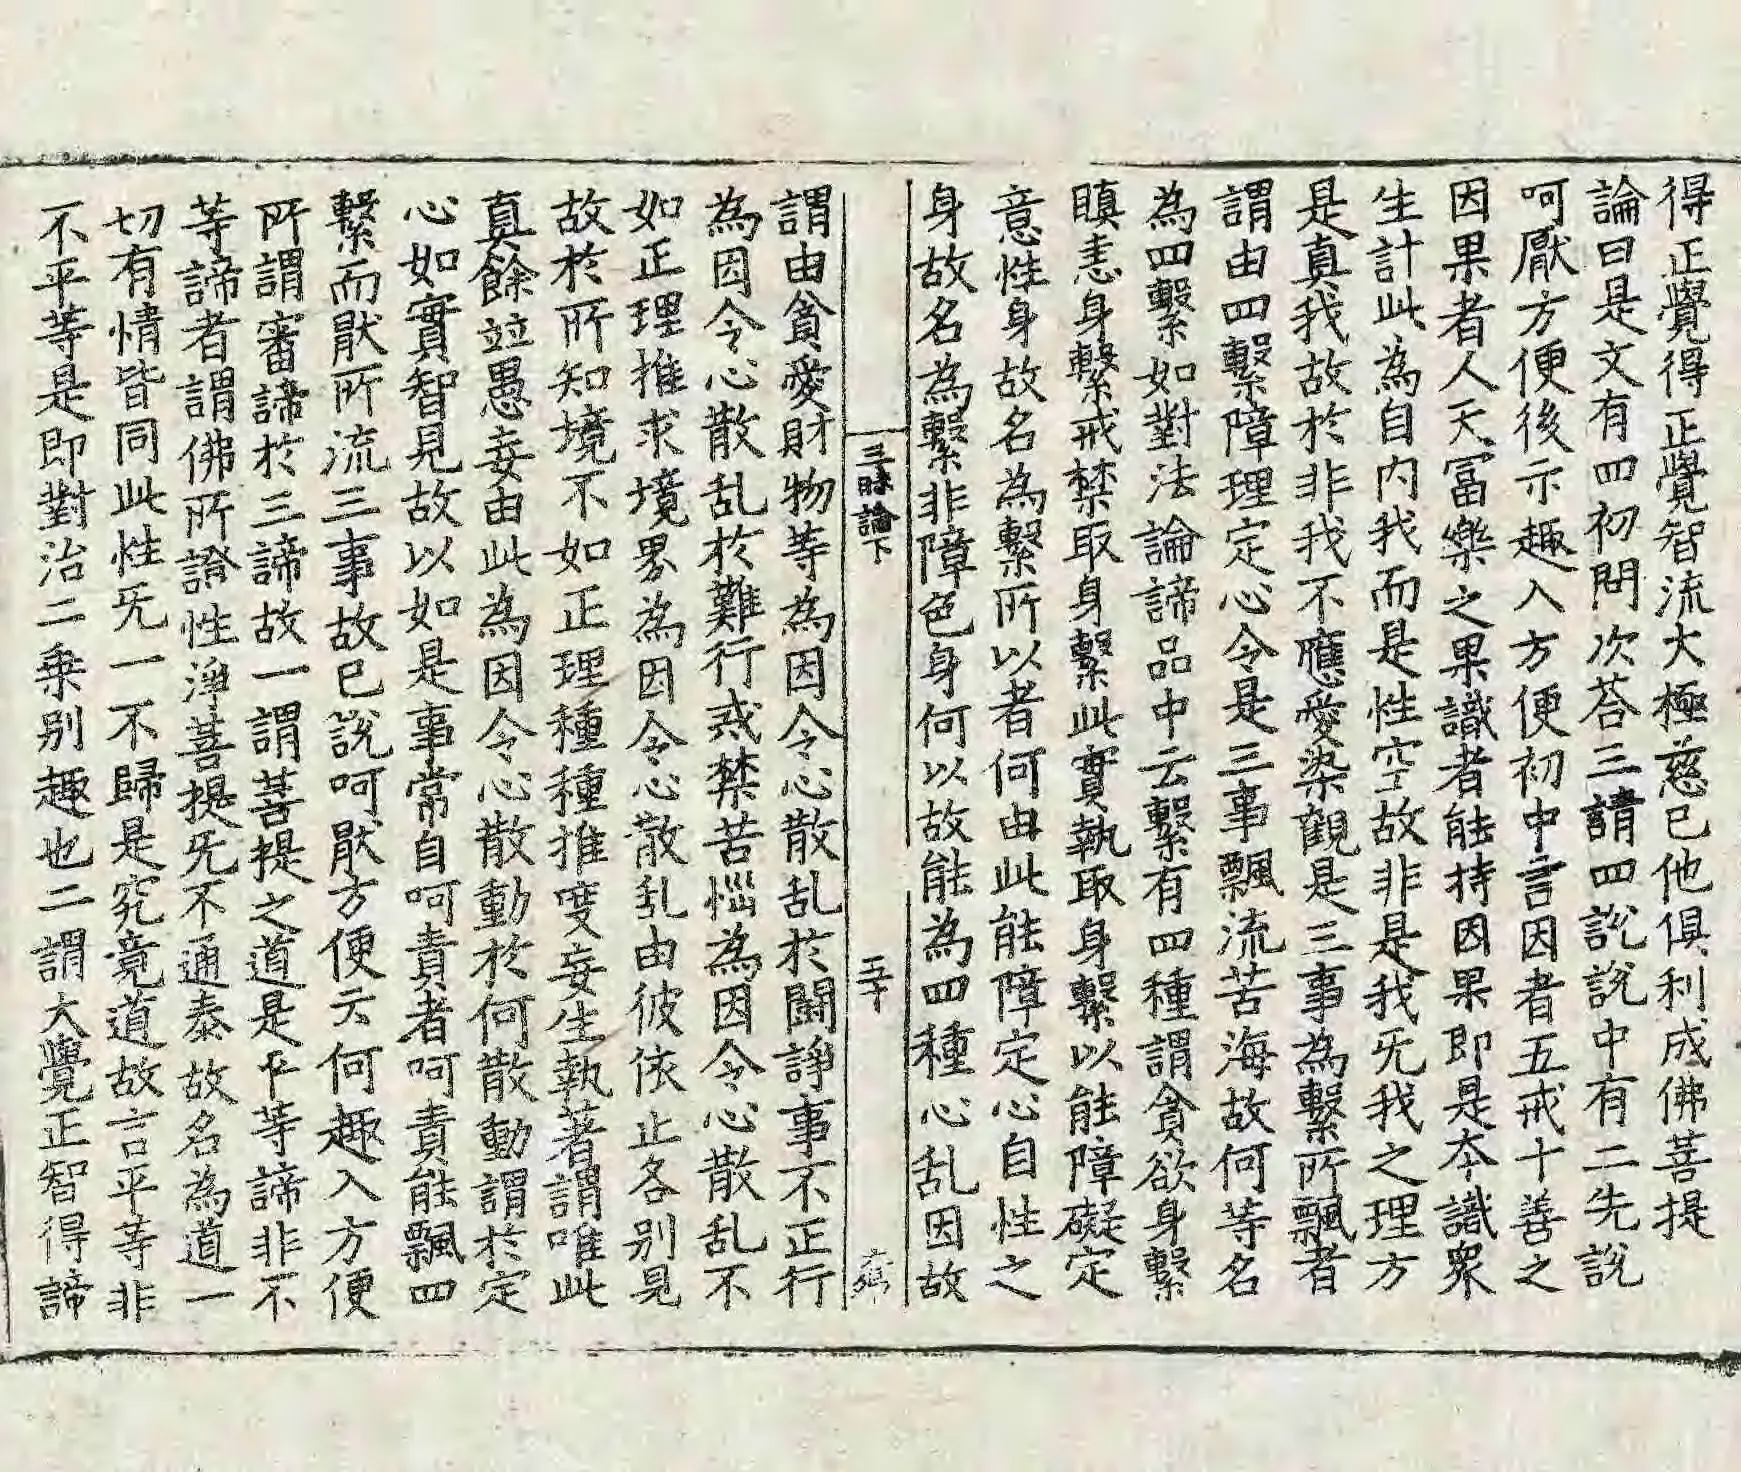 得正覺得正覺智流大極慈已他俱利成佛菩提
論曰是文有四初問次荅三請四說說中有二先說
呵厭方便後示趣入方便初中言因者五戒十善之
因果者人天冨樂之果識者能持因果即是夲識衆
生計此為自内我而是性空故非是我旡我之理方
是真我故於非我不應愛染觀是三事為繫所飄者
謂由四繫障理定心令是三事飄流苦海故何等名
為四繫如對法論諦品中云繫有四種謂貪欲身繫
瞋恚身繫戒禁取身繫此實執取身繫以能障礙定
意性身故名為繫所以者何由此能障定心自性之
身故名為繫非障色身何以故能為四種心乱因故
三昧論下
五十
謂由貪愛財物等為因令心散乱於鬪諍事不正行
為因令心散乱於難行戒禁苦惱為因令心散乱不
如正理推求境界為因令心散乱由彼依止各别見
故於所知境不如正理種種推度妄生執著謂唯此
真餘竝愚妄由此為因令心散動於何散動謂於定
心如實智見故以如是事常自呵責者呵責能飄四
繫而猒所流三事故已說呵猒方便云何趣入方便
所謂審諦於三諦故一謂菩提之道是平等諦非不
等諦者謂佛所證性淨菩提旡不通泰故名為道一
切有情皆同此性旡一不歸是究竟道故言平等非
不平等是即對治二乗别趣也二謂大覺正智得諦